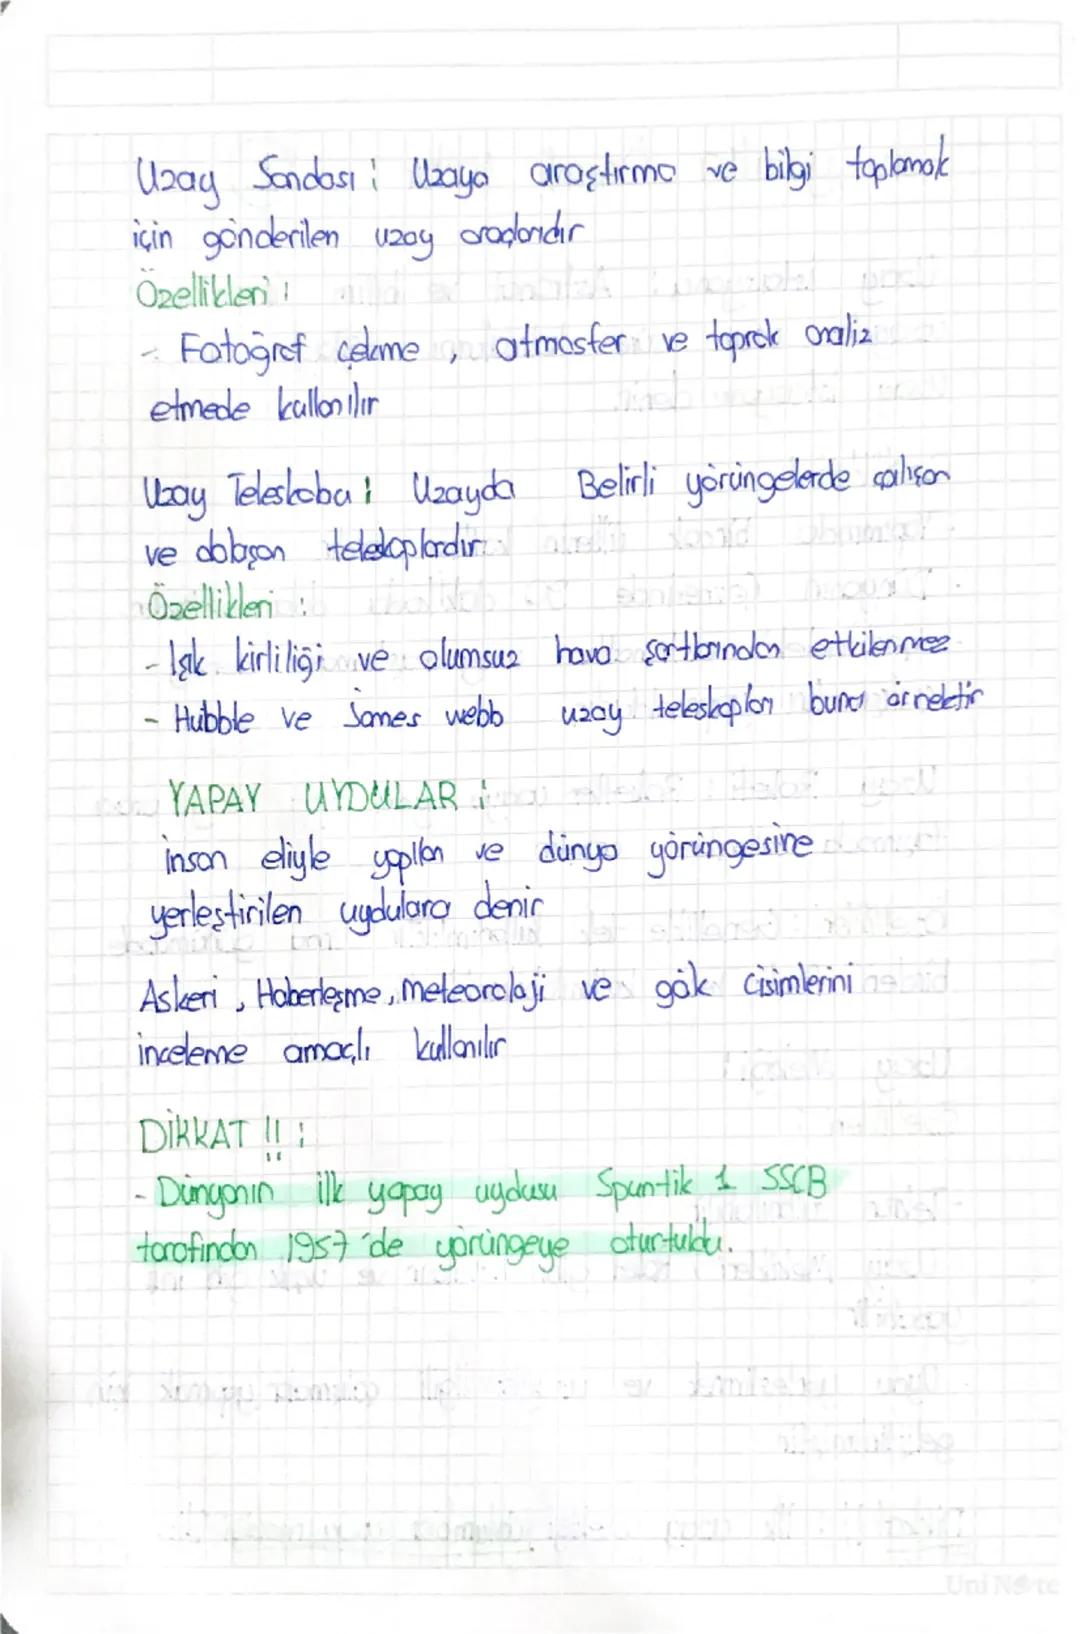 Uzay Sondası : Uzaya araştırma ve bilgi toplamak
için gönderilen uzay araçlarıdır
Özellikleri :
- Fotoğraf çekme , atmosfer ve toprak analiz
etmede kullanılır
Uzay Teleskobu : Uzayda Belirli yörüngelerde çalışan
ve dolaşan teleskoplardır
Özellikleri :
- Işık kirliliği ve olumsuz hava şartlarından etkilenmez
- Hubble ve James webb uzay teleskopları buna örnektir
YAPAY UYDULAR :
insan eliyle yapılan ve dünya yörüngesine
yerleştirilen uydulara denir
Askeri , Haberleşme , meteoroloji ve gök cisimlerini
inceleme amaçlı kullanılır
DİKKAT !! :
- Dünyanın ilk yapay uydusu Spuntik 1 SSCB
tarafından 1957'de yörüngeye oturtuldu.
Uni Note